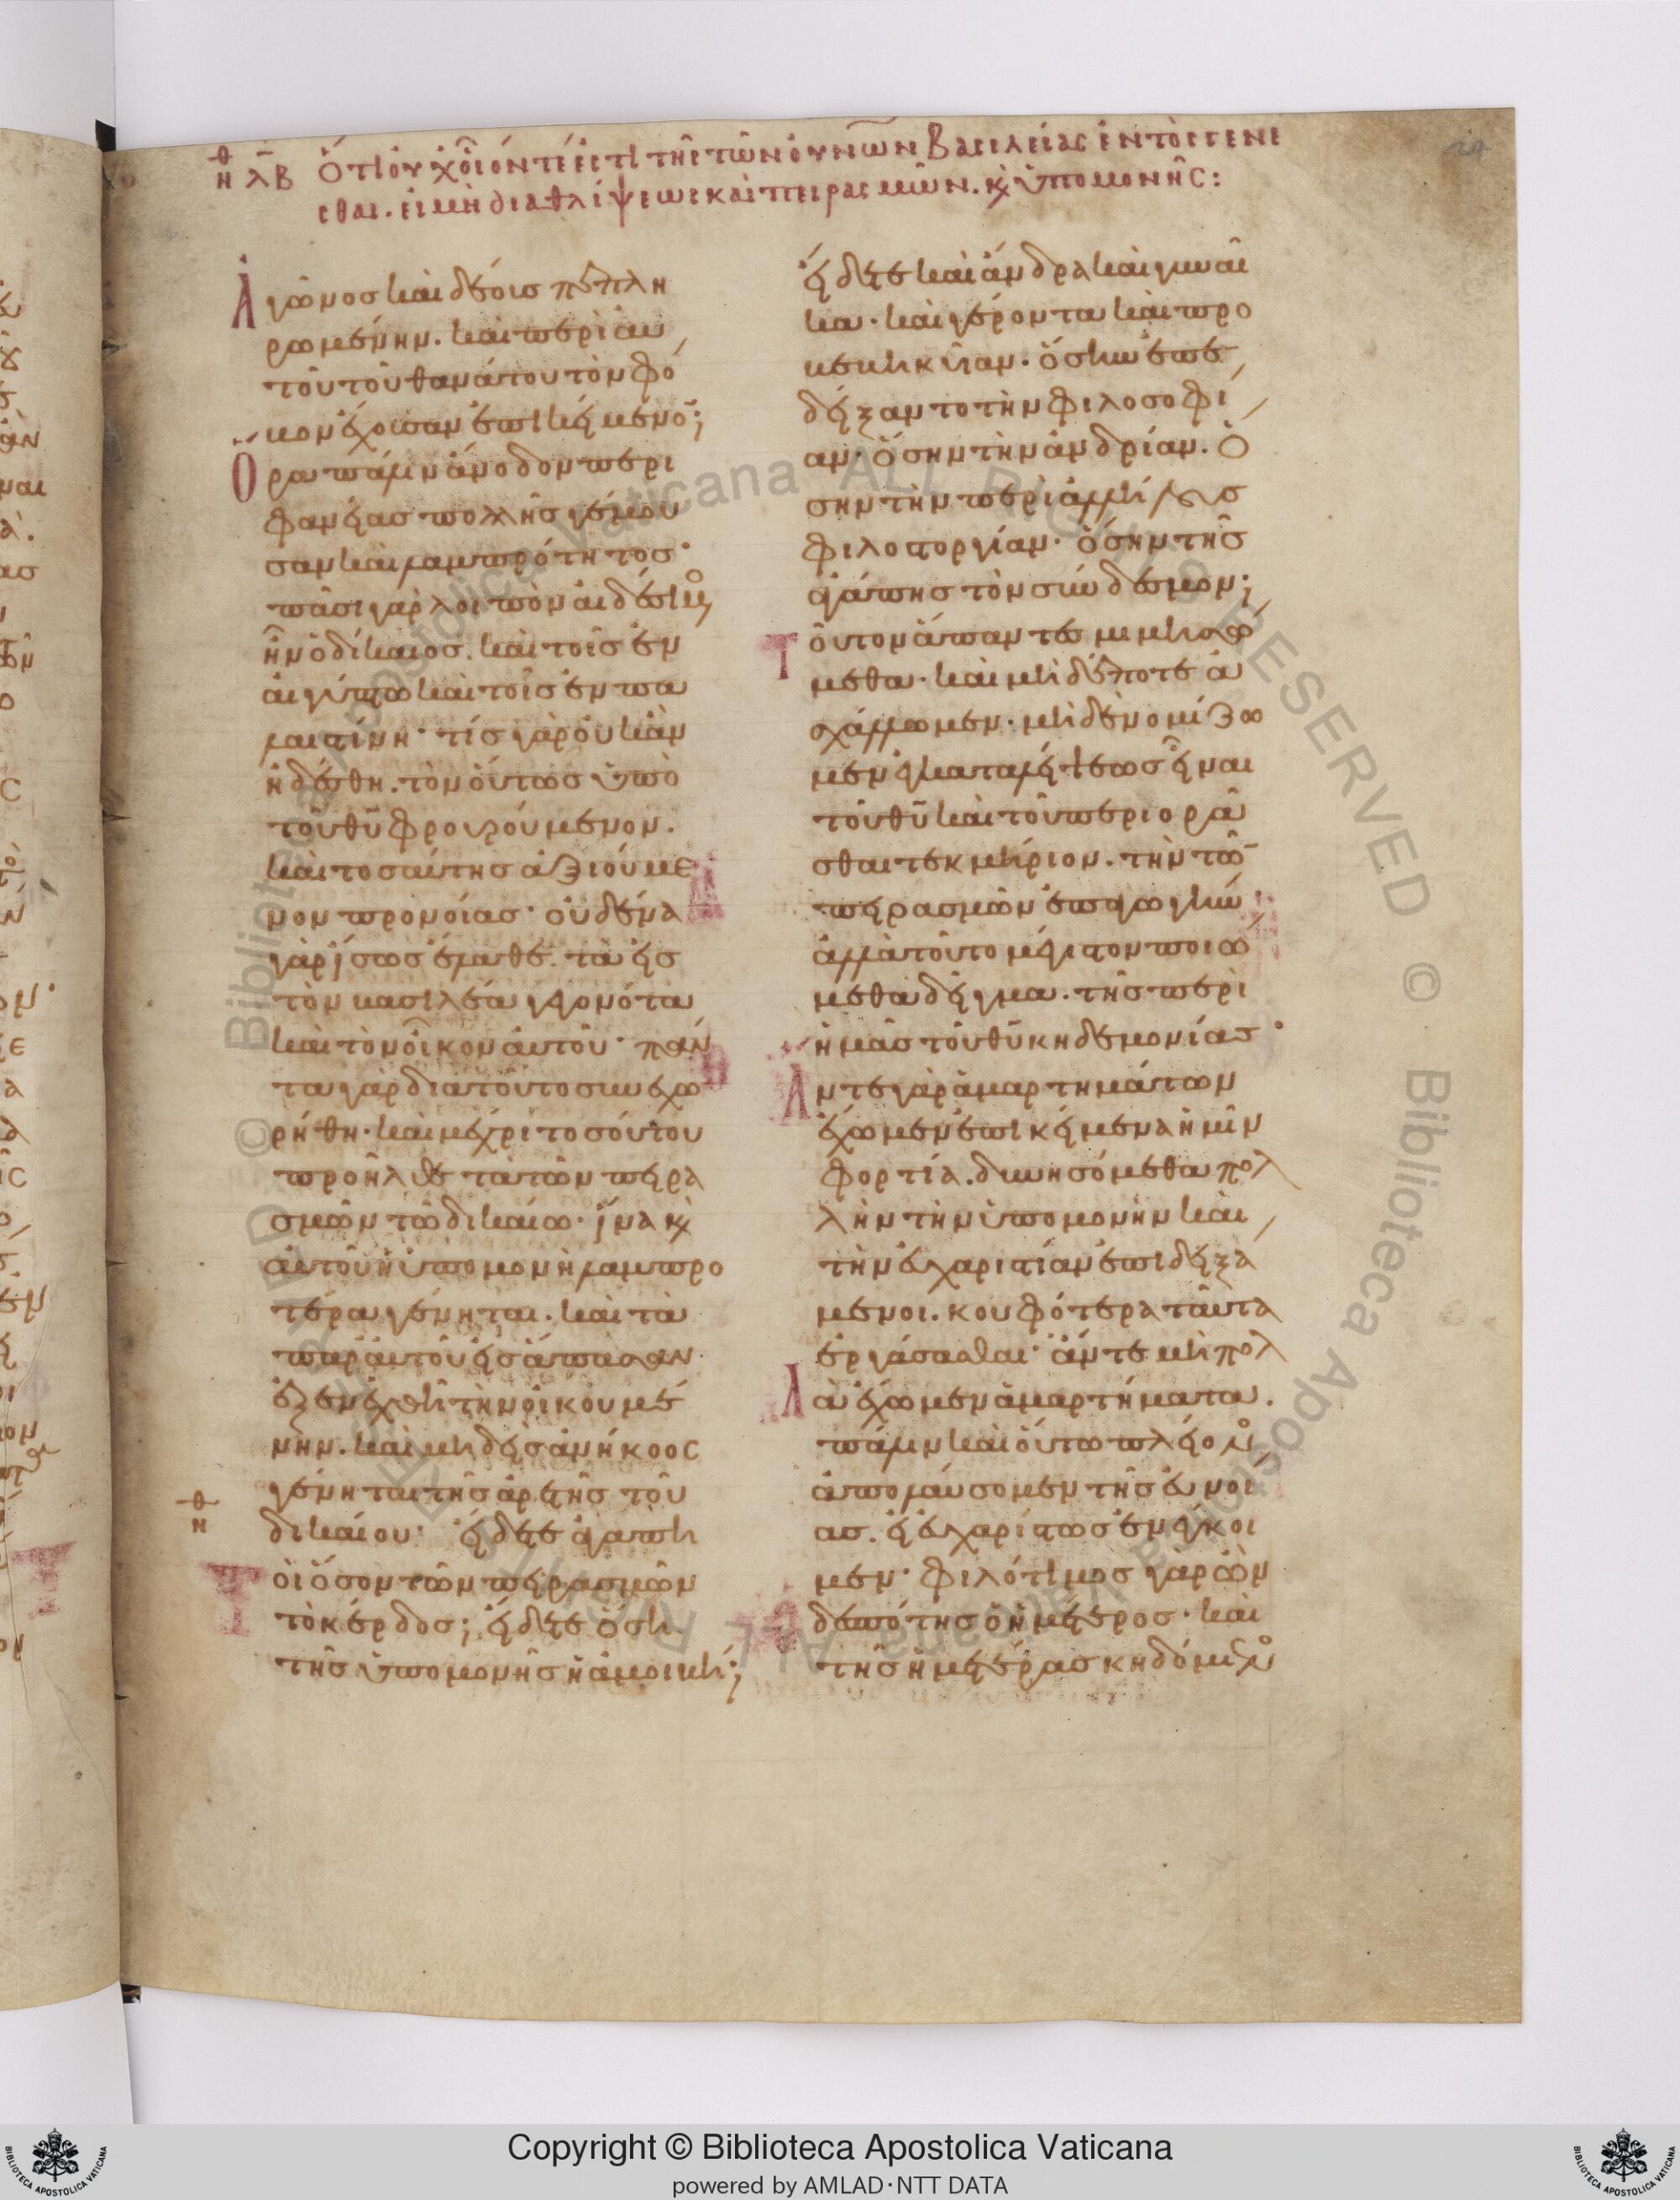 θη λβ Ὅτι οὐχ οἷόν τέ ἐστι τῆς τῶν οὐνῶν βασιλείας ἐντὸς γενέ
σθαι. εἰ μὴ διὰ θλίψεως καὶ πειρασμῶν. κ(αὶ) ὑπομονῆς:
ἀγῶνος καὶ δέους πεπλη
ρωμένην. καὶ περὶ αυ
τοῦ τοῦ θανάτου τὸν φό
βον ἔχουσαν ἐπικείμενον;
Ὅρα πάλιν ἄνοδον περι
φανείας πολλῆς γέμου
σαν καὶ λαμπρότητος·
πᾶσι γὰρ λοιπὸν αἰδέσιμος
ἦν ὁ δίκαιος. καὶ τοῖς ἐν
αἰγύπτω καὶ τοῖς ἐν πα
λαιστίνη· τίς γὰρ οὐκ ἂν
ἠδέσθη. τὸν οὕτως ὑπὸ
τοῦ θῦ φρουρούμενον.
καὶ τοσαύτης ἀξιούμε
νον προνοίας· οὐδένα
γὰρ ἴσως ἔλαθε. τὰ εἰς
τὸν βασιλέα γεγονότα
καὶ τὸν οἶκον αὐτοῦ· πάν
τα γὰρ διὰ τοῦτο συνεχω
ρήθη. καὶ μέχρι τοσούτου
προῆλθε τὰ τῶν πειρα
σμῶν τῶ δικαίω. ἵνα κ(αὶ)
αὐτοῦ ἡ ὑπομονὴ λαμπρο
τέρα γένηται. καὶ τὰ
παρ' αὐτοῦ εἰς ἅπασαν
ἐξενεχθῆ τὴν οἰκουμέ
νην. καὶ μηδεὶς ἀνήκοος
γένηται τῆς ἀρετῆς τοῦ
θη δικαίου· εἴδετε ἀγαπητοὶ
οἱ ὅσον τῶν πειρασμῶν
τὸ κέρδος; εἴδετε ὅση
τῆς ὑπομονῆς ἡ ἀμοιβή;
εἴδετε καὶ ἄνδρα καὶ γυναῖ
κα. καὶ γέροντα καὶ προ
βεβηκυῖαν. ὅσην ἐπε
δείξαντο τὴν φιλοσοφί
αν· ὅσην τὴν ἀνδρίαν. ὅ
σην τὴν περὶ ἀλλήλους
φιλοστοργίαν· ὅσην τῆς
ἀγάπης τὸν σύνδεσμον;
Τοῦτον ἅπαντες μιμησώ
μεθα. καὶ μηδέποτε ἀ
σχάλλωμεν. μηδὲ νομίζω
μεν ἐγκαταλείψεως εἶναι
τοῦ θῦ καὶ τοῦ περιορᾶ
σθαι τεκμήριον. τὴν τῶν
πειρασμῶν ἐπαγωγὴν
ἀλλὰ τοῦτο μέγιστον ποιώ
μεθα δεῖγμα. τῆς περὶ
ἡμᾶς τοῦ θῦ κηδεμονίας·
Ἄν τε γὰρ ἁμαρτημάτων
ἔχωμεν ἐπικείμενα ἡμῖν
φορτία. δυνησόμεθα πολ
λὴν τὴν ὑπομονὴν καὶ
τὴν εὐχαριστίαν ἐπιδειξά
μενοι. κουφότερα ταῦτα
ἐργάσασθαι· ἄν τε μὴ πολ
λὰ ἔχωμεν ἁμαρτήματα.
πάλιν καὶ οὕτω πλείονος
ἀπολαύσομεν τῆς εὐνοί
ας. εἰ εὐχαρίστως ἐνέγκοι
μεν· φιλότιμος γὰρ ὢν
δεσπότης ὁ ἡμέτερος. καὶ
τῆς ἡμετέρας κηδόμενος
Copyright © Biblioteca Apostolica Vaticana
powered by AMLAD·NTT DATA